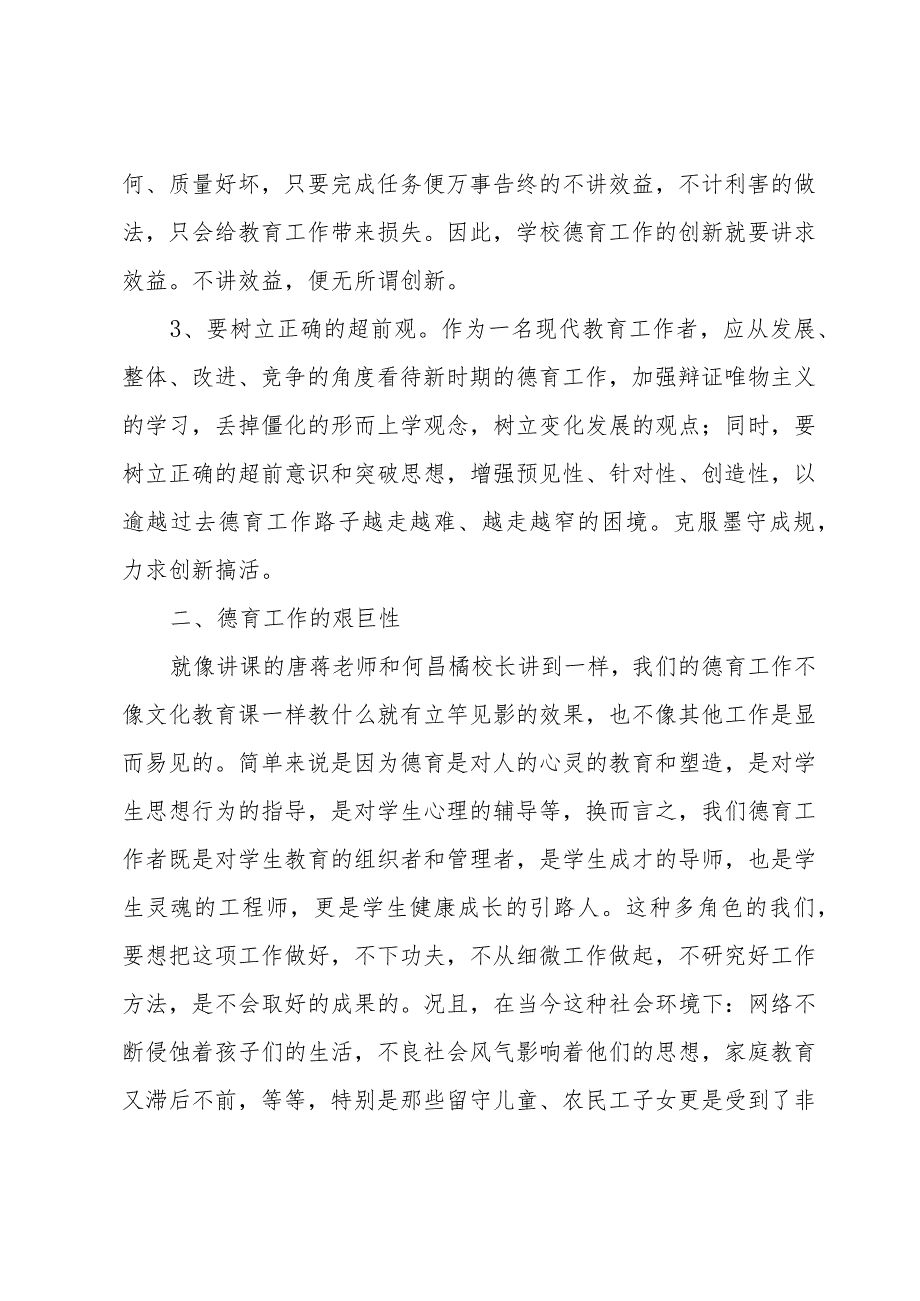 何、质量好坏，只要完成任务便万事告终的不讲效益，不计利害的做
法，只会给教育工作带来损失。因此，学校德育工作的创新就要讲求
效益。不讲效益，便无所谓创新。
3、要树立正确的超前观。作为一名现代教育工作者，应从发展、
整体、改进、竞争的角度看待新时期的德育工作，加强辩证唯物主义
的学习，丢掉僵化的形而上学观念，树立变化发展的观点；同时，要
树立正确的超前意识和突破思想，增强预见性、针对性、创造性，以
逾越过去德育工作路子越走越难、越走越窄的困境。克服墨守成规，
力求创新搞活。
二、德育工作的艰巨性
就像讲课的唐蒋老师和何昌橘校长讲到一样，我们的德育工作不
像文化教育课一样教什么就有立竿见影的效果，也不像其他工作是显
而易见的。简单来说是因为德育是对人的心灵的教育和塑造，是对学
生思想行为的指导，是对学生心理的辅导等，换而言之，我们德育工
作者既是对学生教育的组织者和管理者，是学生成才的导师，也是学
生灵魂的工程师，更是学生健康成长的引路人。这种多角色的我们，
要想把这项工作做好，不下功夫，不从细微工作做起，不研究好工作
方法，是不会取好的成果的。况且，在当今这种社会环境下：网络不
断侵蚀着孩子们的生活，不良社会风气影响着他们的思想，家庭教育
又滞后不前，等等，特别是那些留守儿童、农民工子女更是受到了非